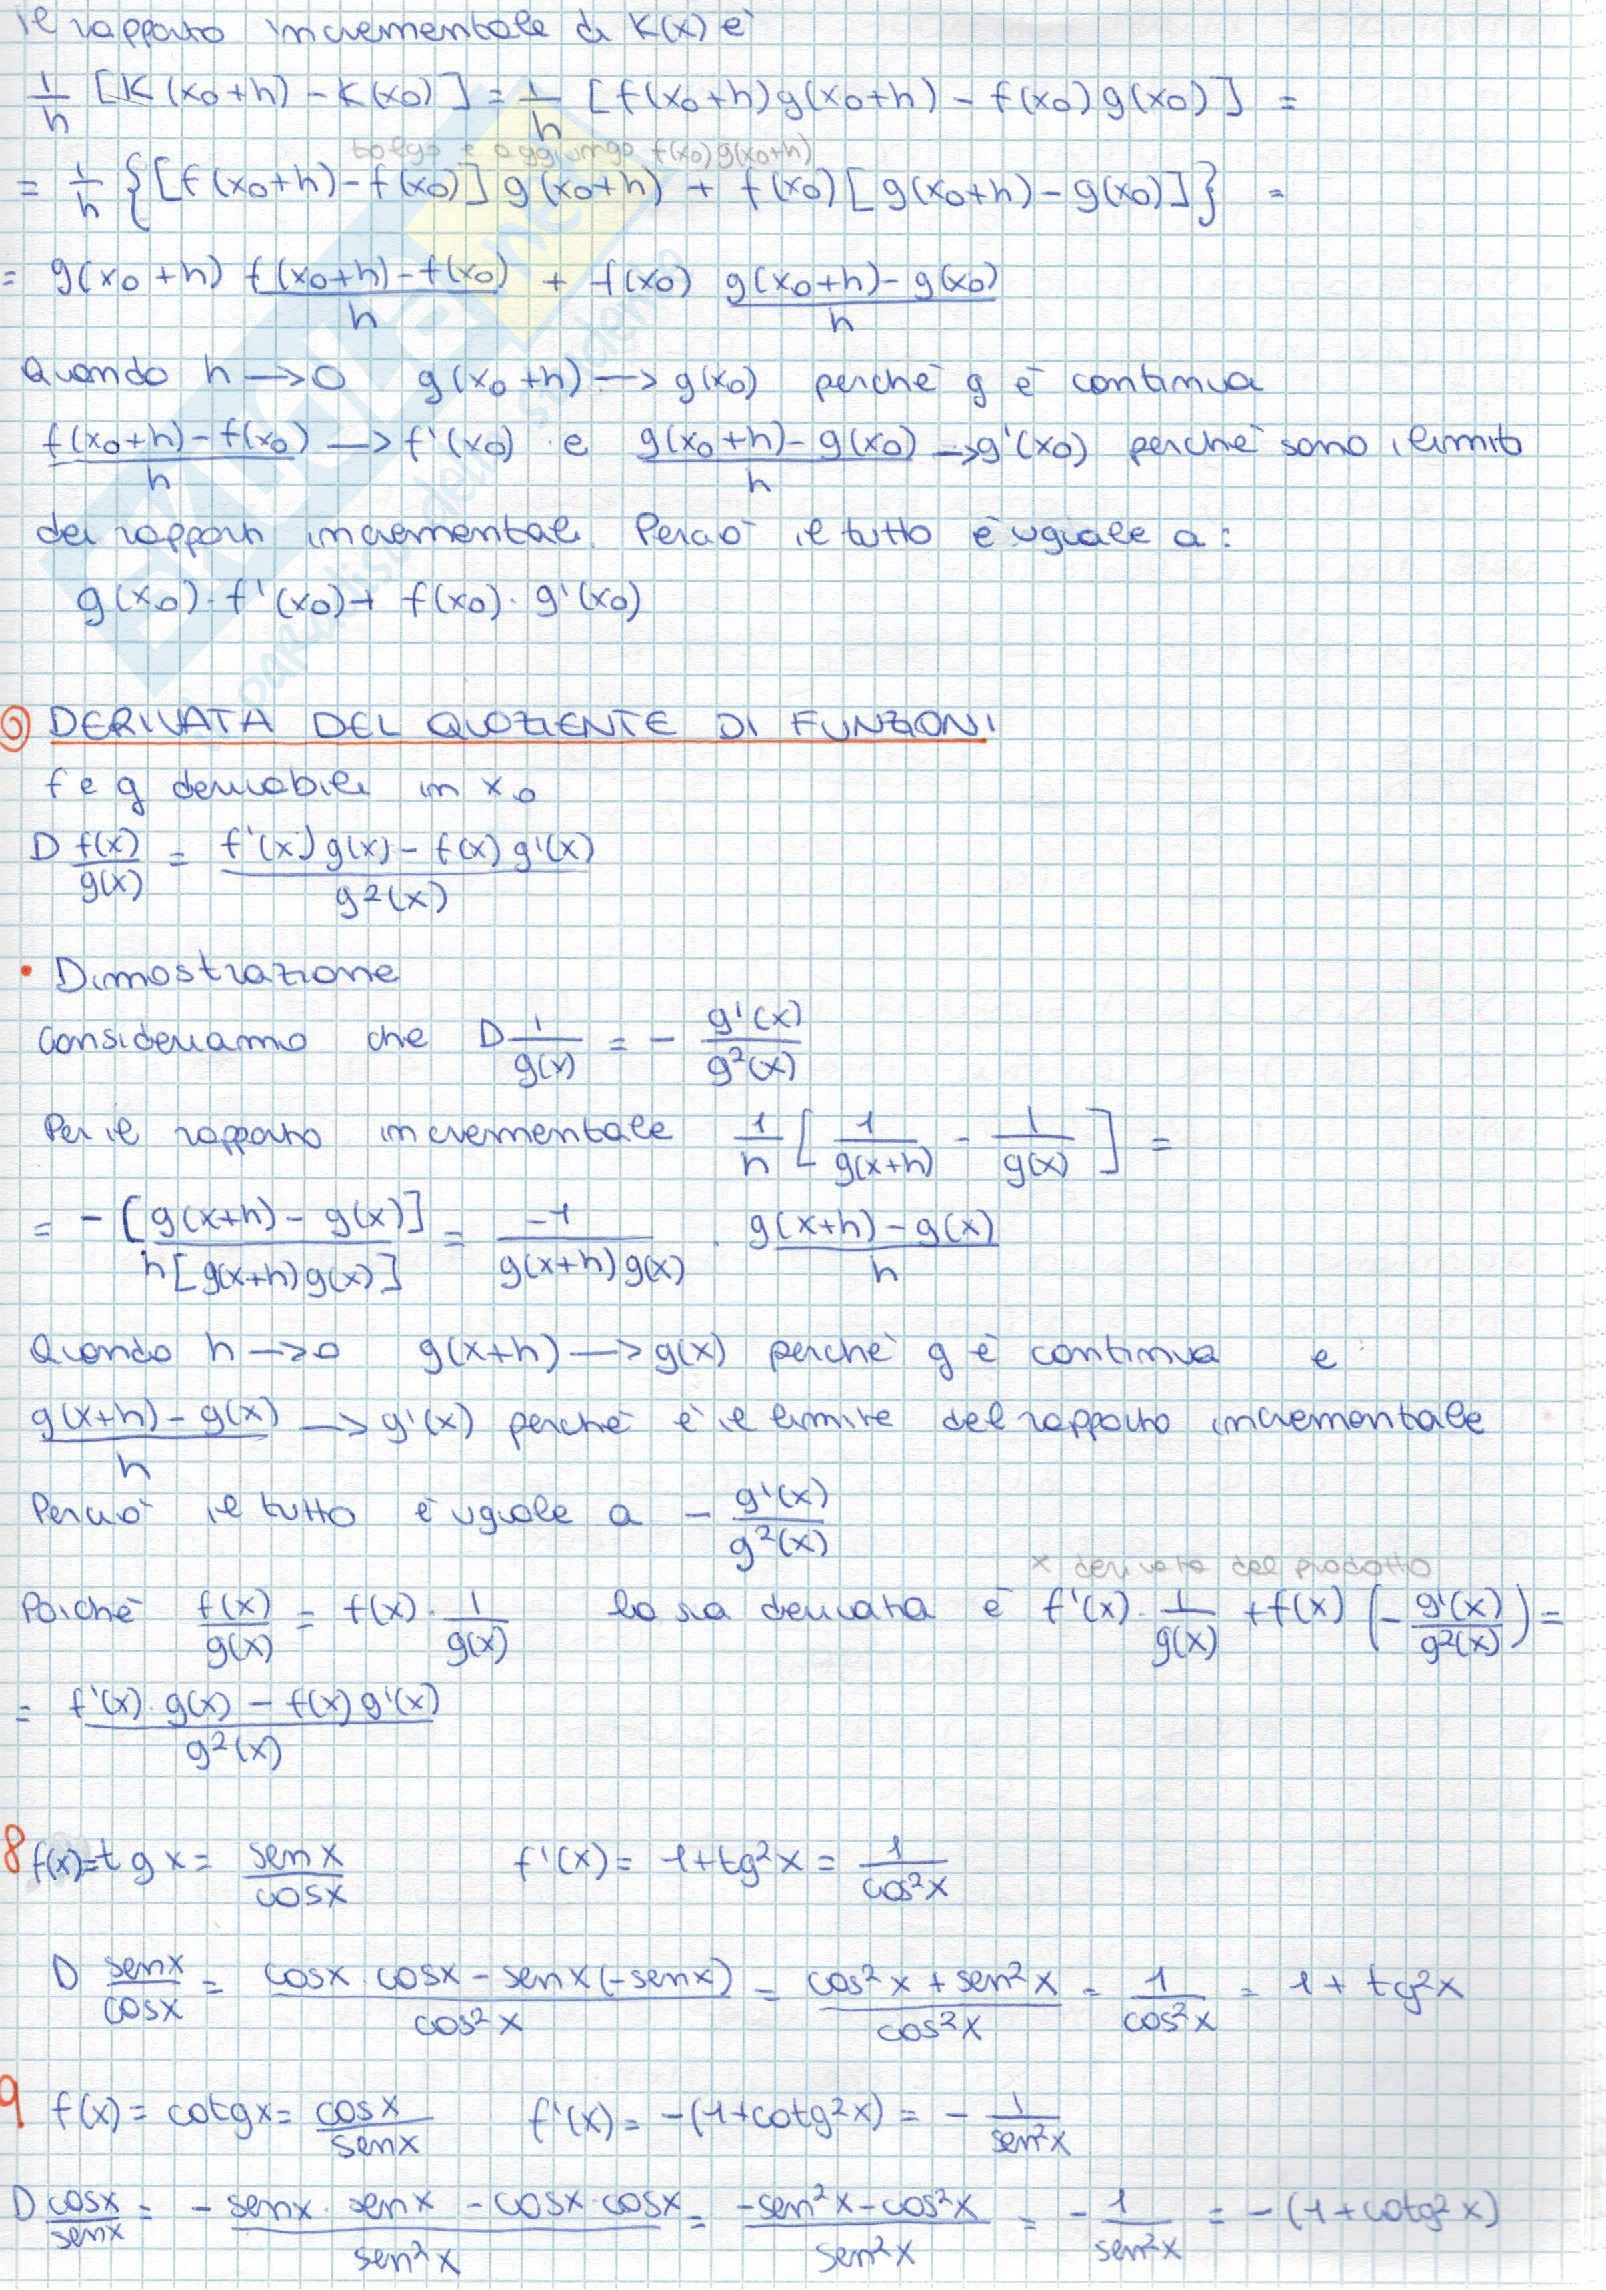 Il rapporto incrementale di K(x) è
1/h [K(x₀+h) - K(x₀)] = 1/h [f(x₀+h)g(x₀+h) - f(x₀)g(x₀)] =
tolgo e aggiungo f(x₀)g(x₀+h)
= 1/h {[f(x₀+h) - f(x₀)] g(x₀+h) + f(x₀) [g(x₀+h) - g(x₀)]} =
= g(x₀+h) (f(x₀+h) - f(x₀))/h + f(x₀) (g(x₀+h) - g(x₀))/h
Quando h → 0 g(x₀+h) → g(x₀) perchè g è continua
(f(x₀+h) - f(x₀))/h → f'(x₀) e (g(x₀+h) - g(x₀))/h → g'(x₀) perchè sono i limiti
dei rapporti incrementali. Perciò il tutto è uguale a:
g(x₀)·f'(x₀) + f(x₀)·g'(x₀)
DERIVATA DEL QUOZIENTE DI FUNZIONI
f e g derivabili in x₀
D f(x)/g(x) = (f'(x)g(x) - f(x)g'(x))/g²(x)
• Dimostrazione
Consideriamo che D 1/g(x) = - g'(x)/g²(x)
Per il rapporto incrementale 1/h [1/g(x+h) - 1/g(x)] =
= -[g(x+h) - g(x)]/h[g(x+h)g(x)] = -1/(g(x+h)g(x)) · (g(x+h) - g(x))/h
Quando h → 0 g(x+h) → g(x) perchè g è continua e
(g(x+h) - g(x))/h → g'(x) perchè è il limite del rapporto incrementale
Perciò il tutto è uguale a - g'(x)/g²(x)
x derivata del prodotto
Poichè f(x)/g(x) = f(x)·1/g(x) la sua derivata è f'(x)·1/g(x) + f(x)(-g'(x)/g²(x)) =
= (f'(x)·g(x) - f(x)g'(x))/g²(x)
8 f(x)=tgx = senx/cosx f'(x) = 1+tg²x = 1/cos²x
D senx/cosx = (cosx·cosx - senx(-senx))/cos²x = (cos²x + sen²x)/cos²x = 1/cos²x = 1 + tg²x
9 f(x) = cotgx = cosx/senx f'(x) = -(1+cotg²x) = - 1/sen²x
D cosx/senx = (-senx·senx - cosx·cosx)/sen²x = (-sen²x - cos²x)/sen²x = - 1/sen²x = -(1+cotg²x)